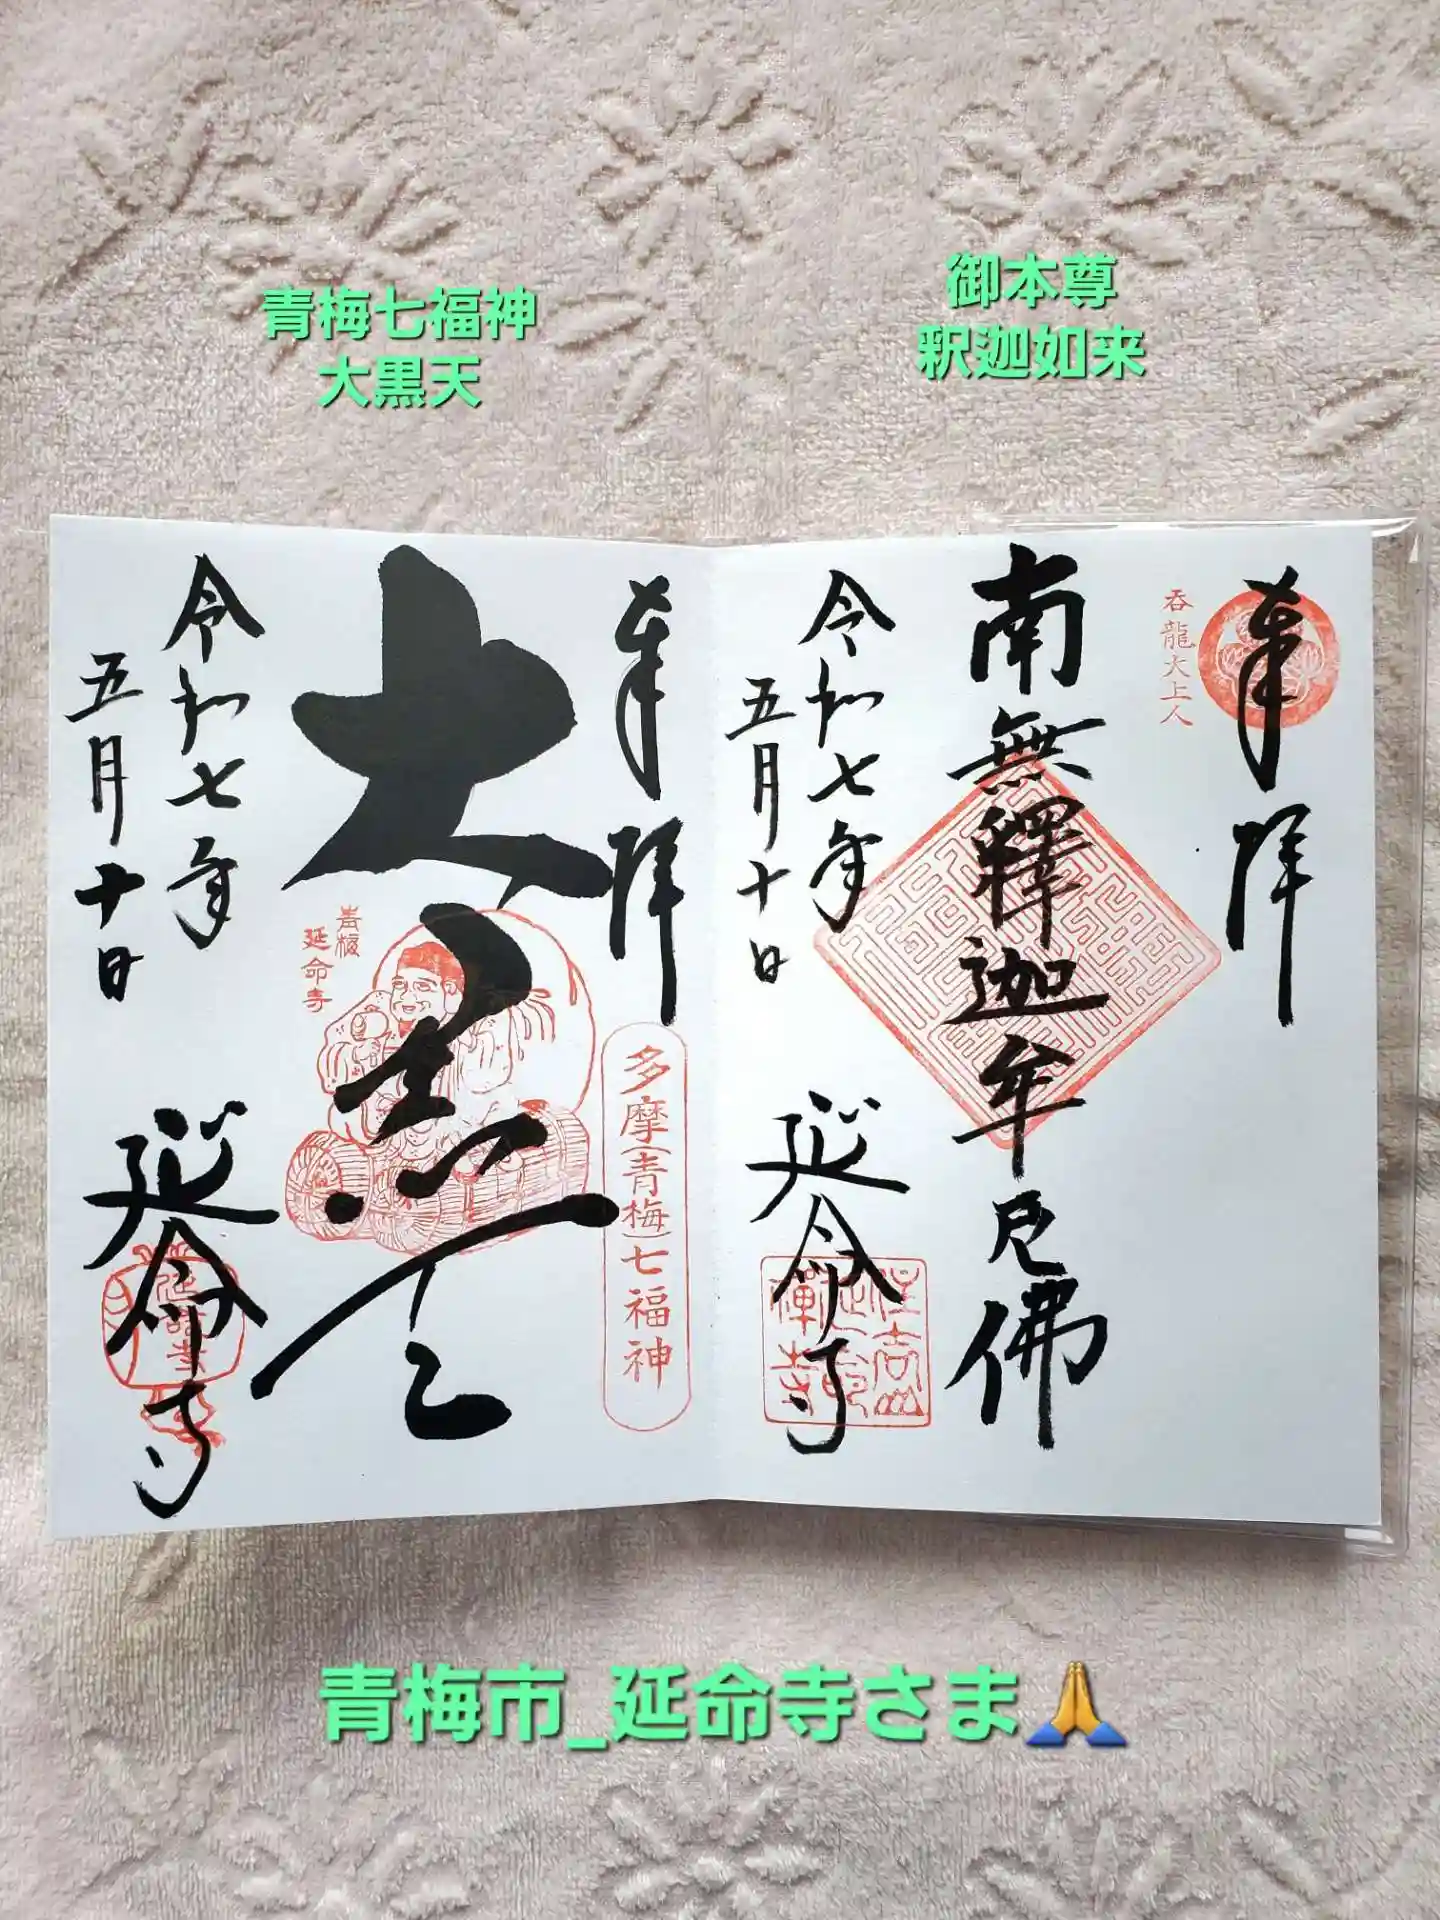 青梅七福神
大黒天
御本尊
釈迦如来
奉拝
呑龍大上人
南無釋迦牟尼佛
令和七年
五月十日
延命寺
奉拝
大黒天
青梅
延命寺
多摩(青梅)七福神
令和七年
五月十日
延命寺
青梅市_延命寺さま🙏